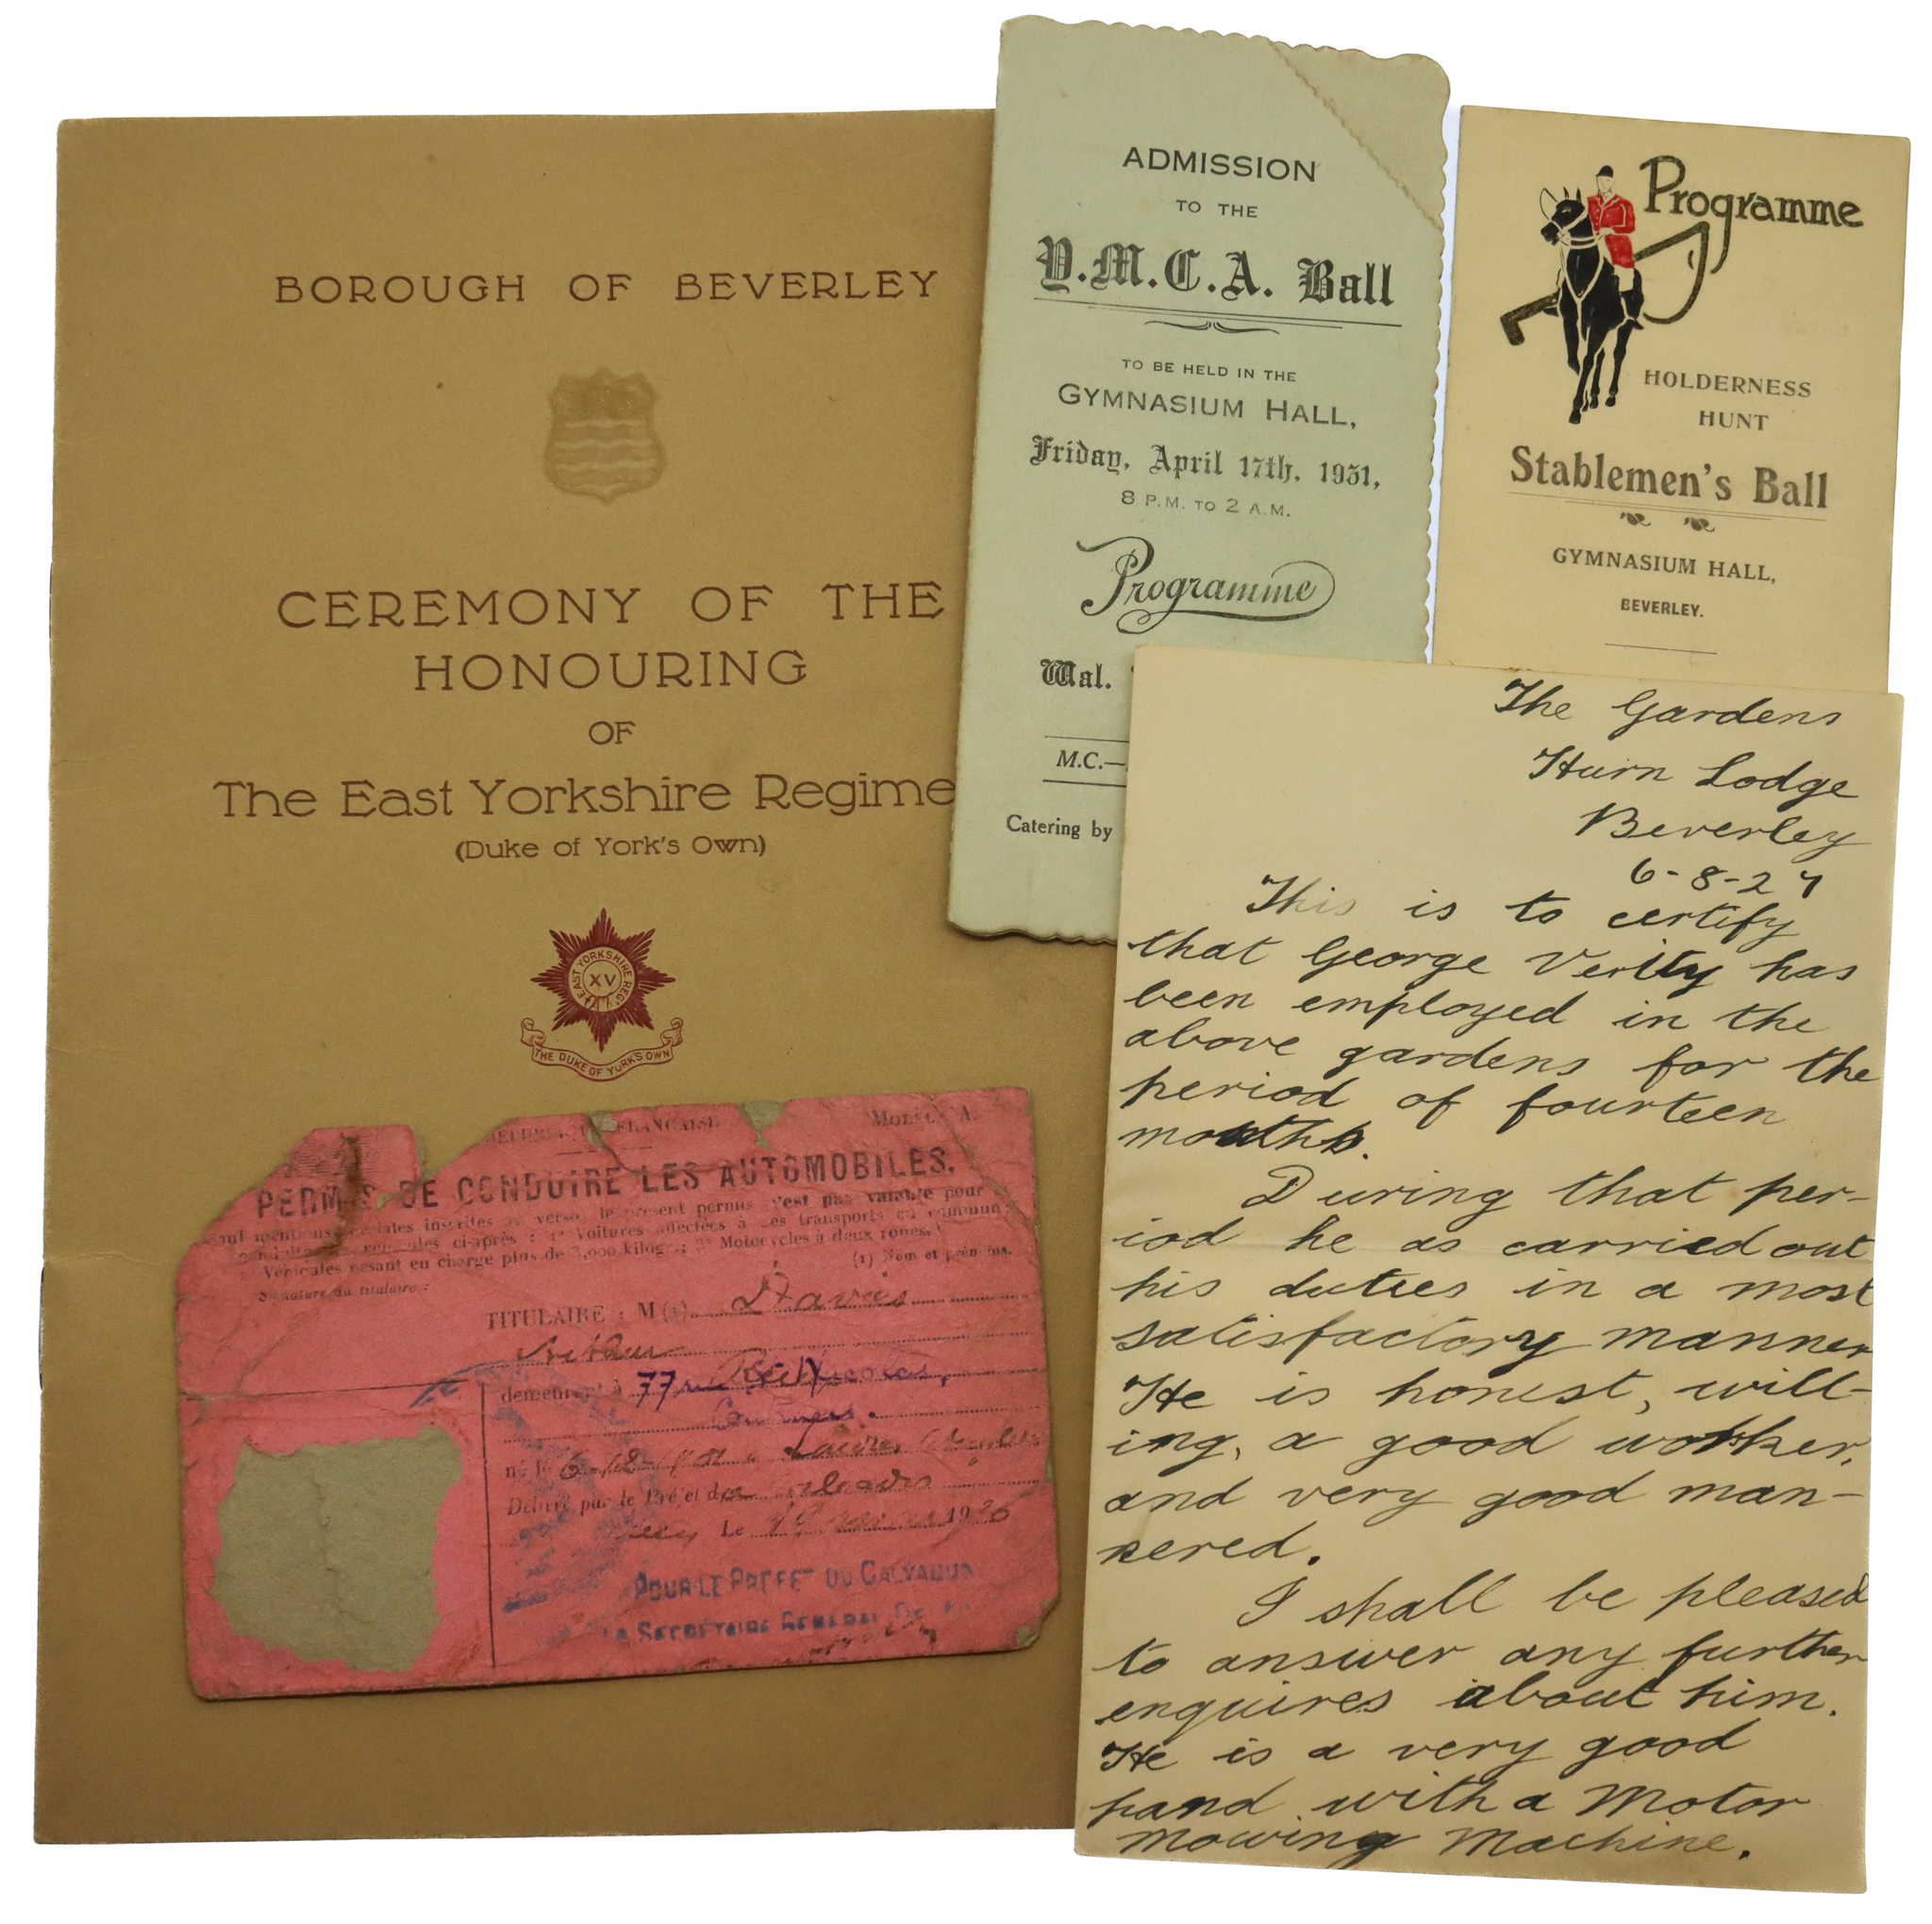 BOROUGH OF BEVERLEY
CEREMONY OF THE
HONOURING
OF
The East Yorkshire Regime
(Duke of York's Own)
EAST YORKSHIRE REGT
XV
THE DUKE OF YORK'S OWN
ADMISSION
TO THE
Y.M.C.A. Ball
TO BE HELD IN THE
GYMNASIUM HALL,
Friday, April 17th, 1931,
8 P.M. TO 2 A.M.
Programme
Wal.
M.C.—
Catering by
Programme
HOLDERNESS
HUNT
Stablemen's Ball
GYMNASIUM HALL,
BEVERLEY.
The Gardens
Hurn Lodge
Beverley
6-8-27
This is to certify
that George Verity has
been employed in the
above gardens for the
period of fourteen
months.
During that per-
iod he as carried out
his duties in a most
satisfactory manner
He is honest, will-
ing, a good worker,
and very good man-
nered.
I shall be pleased
to answer any further
enquires about him.
He is a very good
hand with a Motor
Mowing Machine.
FRANÇAISE
MODÈLE A.
PERMIS DE CONDUIRE LES AUTOMOBILES.
mentions spéciales inscrites au verso, le présent permis n'est pas valable pour
ci-après : 1° Voitures affectées à des transports en commun
Véhicules pesant en charge plus de 3,000 kilogs; 3° Motocycles à deux roues.
(1) Nom et prénoms.
Signature du titulaire :
TITULAIRE : M (1) Davis
Arthur
demeurant à 77 rue St Nicolas,
né le 6
Délivré par le Préfet du Calvados
Le 19 1926
POUR LE PRÉFET DU CALVADOS
LE SECRÉTAIRE GÉNÉRAL